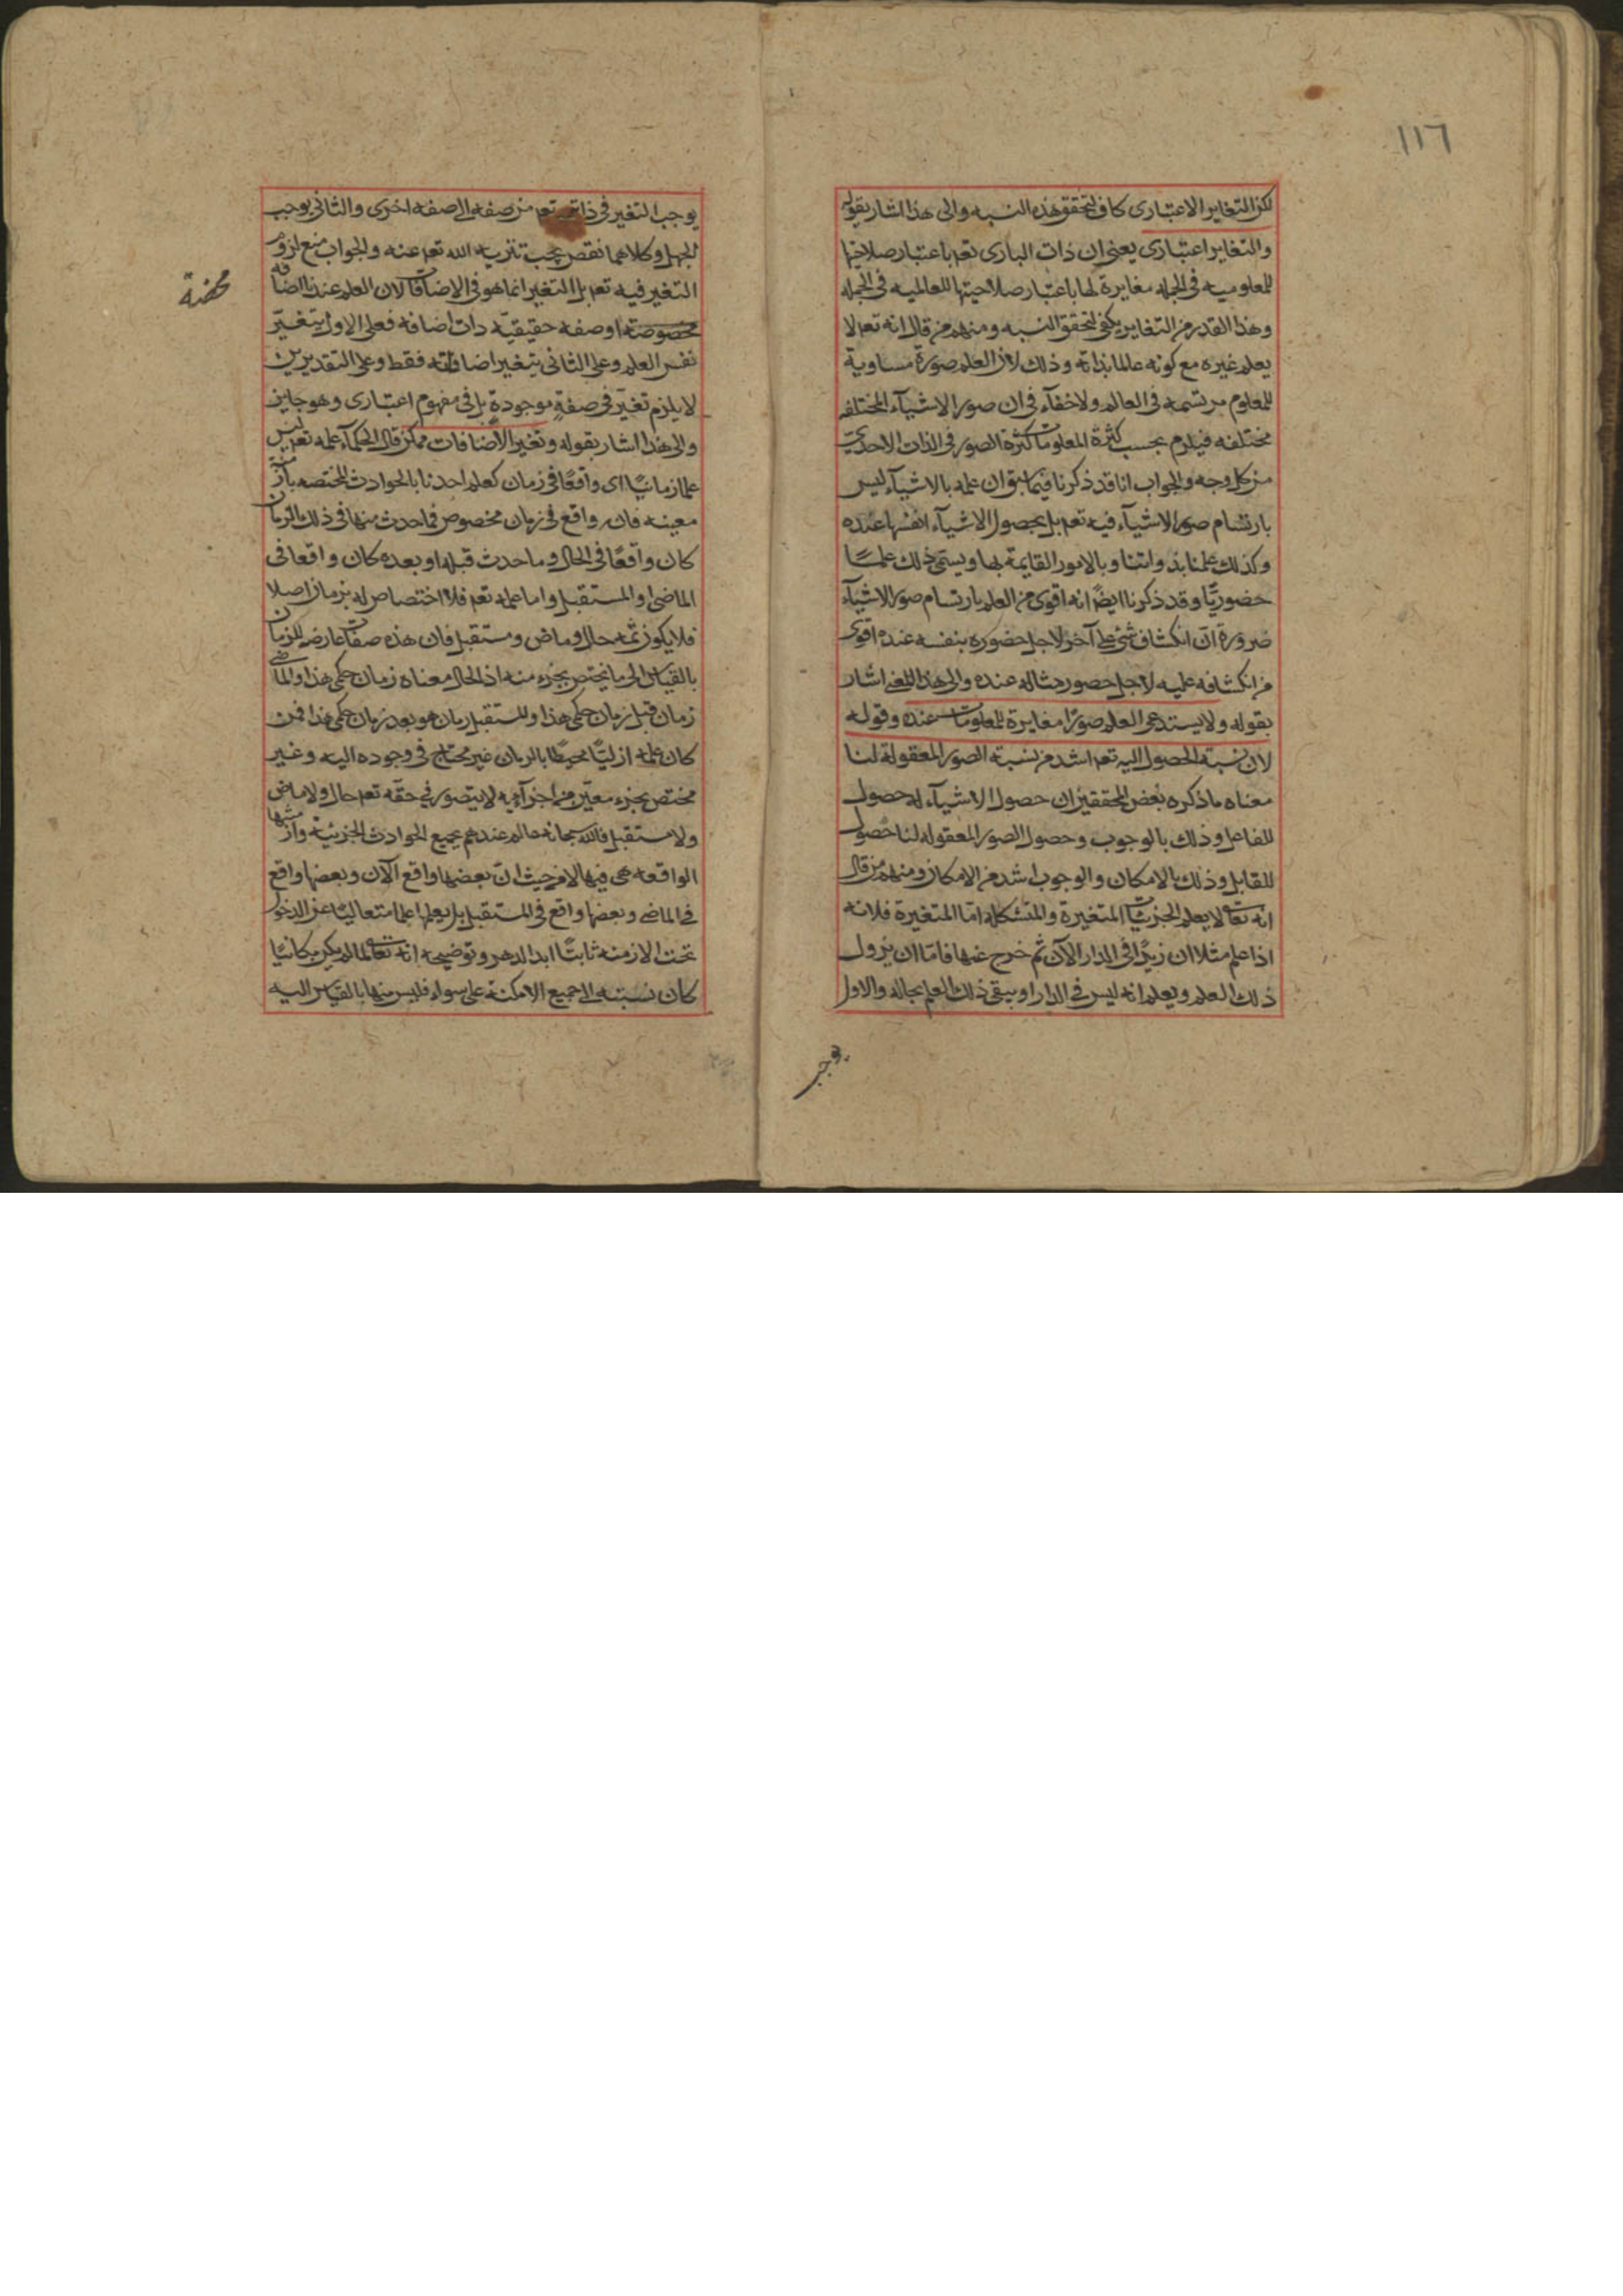 ١١٦
لكن التغاير الاعتبارى كاف لتحقق هذه النسبه والى هذا اشار بقوله
والتغاير اعتبارى يعنى ان ذات البارى تعم باعتبار صلاحيتها
للمعلوميه فى الجمله مغايرة لها باعتبار صلاحيتها للعالميه فى الجمله
وهذا القدر من التغاير يكفى لتحقق النسبه ومنهم من قال انه تعم لا
يعلم غيره مع كونه عالما بذاته وذلك لان العلم صورة مساوية
للمعلوم مرتسمه فى العالم ولا خفآء فى ان صور الاشيآء المختلفه
مختلفه فيلزم بحسب كثرة المعلومات كثرة الصور فى الذات الاحدية
من كل وجه والجواب انا قد ذكرنا فيما سبق ان علمه بالاشيآء ليس
بارتسام صور الاشيآء فيه تعم بل بحصول الاشيآء انفسها عنده
وكذلك علمنا بذواتنا وبالامور القايمة بها ويسمى ذلك علمًا
حضوريًا وقد ذكرنا ايضًا انه اقوى من العلم بارتسام صور الاشيآء
ضرورة انّ انكشاف شئ على آخر لاجل حضوره بنفسه عنده اقوى
من انكشافه عليه لاجل حضور مثاله عنده والى هذا المعنى اشار
بقوله ولا يستدعى العلم صورًا مغايرة للمعلومات عنده وقوله
لان نسبة الحصول اليه تعم اشد من نسبة الصور المعقولة لنا
معناه ما ذكره بعض المحققين ان حصول الاشيآء له حصول
للفاعل وذلك بالوجوب وحصول الصور المعقوله لنا حصول
للقابل وذلك بالامكان والوجوب اشد من الامكان ومنهم من قال
انه تعالى لا يعلم الجزئيّات المتغيرة والمتشكله امّا المتغيرة فلانه
اذا علم مثلا ان زيدًا فى الدار الآن ثم خرج عنها فامّا ان يزول
ذلك العلم ويعلم انه ليس فى الدار او يبقى ذلك العلم بحاله والاول
يوجب
يوجب التغير فى ذاته تعم من صفه الى صفه اخرى والثانى يوجب
الجهل وكلاهما نقص يجب تنزيه الله تعم عنه والجواب منع لزوم
التغير فيه تعم بل التغير انما هو فى الاضافات لان العلم عندنا اضافه
محضة
مخصوصة او صفه حقيقيّه ذات اضافه فعلى الاول يتغيّر
نفس العلم وعلى الثانى يتغير اضافاته فقط وعلى التقديرين
لا يلزم تغيّر فى صفةٍ موجودةٍ بل فى مفهوم اعتبارى وهو جايز
والى هذا اشار بقوله وتغير الاضافات ممكن قال الحكمآء علمه تعم ليس
علما زمانيًا اى واقعًا فى زمان كعلم احدنا بالحوادث المختصه بازمنة
معينه فانه واقع فى زمان مخصوص فما حدث منها فى ذلك الزمان
كان واقعًا فى الحال وما حدث قبله او بعده كان واقعا فى
الماضى او المستقبل واما علمه تعم فلا اختصاص له بزمان اصلا
فلا يكون ثمّه حال وماض ومستقبل فان هذه صفات عارضه للزمان
بالقياس الى ما يختص بجزء منه اذ الحال معناه زمان حكمى هذا والماضى
زمان قبل زمان حكمى هذا والمستقبل زمان هو بعد زمان حكمى هذا فمن
كان علمه ازليًا محيطًا بالزمان غير محتاج فى وجوده اليه وغير
مختص بجزء معيّن من اجزآءيه لا يتصور فى حقّه تعم حال ولا ماض
ولا مستقبل فالله سبحانه عالم عندهم بجميع الحوادث الجزئيّة وازمنتها
الواقعه هى فيها لا من حيث انّ بعضها واقع الآن وبعضها واقع
فى الماضى وبعضها واقع فى المستقبل بل يعلمها علما متعاليًا عن الدخول
تحت الازمنه ثابتًا ابد الدهر وتوضيحه انه تعالى لما لم يكن مكانيًا
كان نسبته الى جميع الامكنة على سواء فليس منها بالقياس اليه